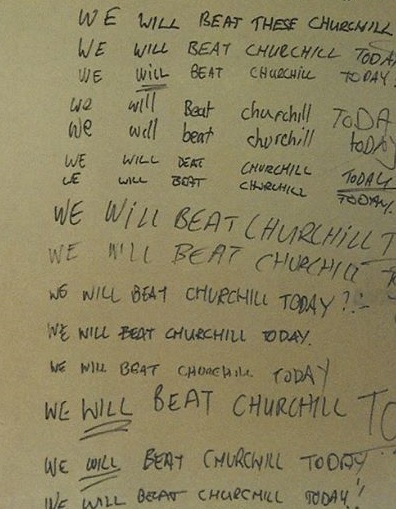 WE WILL BEAT THESE CHURCHILL
WE WILL BEAT CHURCHILL TODA
WE WILL BEAT CHURCHILL TODAY.
we will Beat churchill TODA
we will beat churchill toDAY
WE WILL BEAT CHURCHILL TODAY
WE WILL BEAT CHURCHILL TODAY.
WE WiLL BEAT CHURCHILL T
WE WILL BEAT CHURCHILL
WE WILL BEAT CHURCHILL TODAY ?!-
WE WILL BEAT CHURCHILL TODAY.
WE WILL BEAT CHURCHILL TODAY
WE WILL BEAT CHURCHILL TO
WE WILL BEAT CHURCHILL TODAY!
WE WILL BEAT CHURCHILL TODAY!